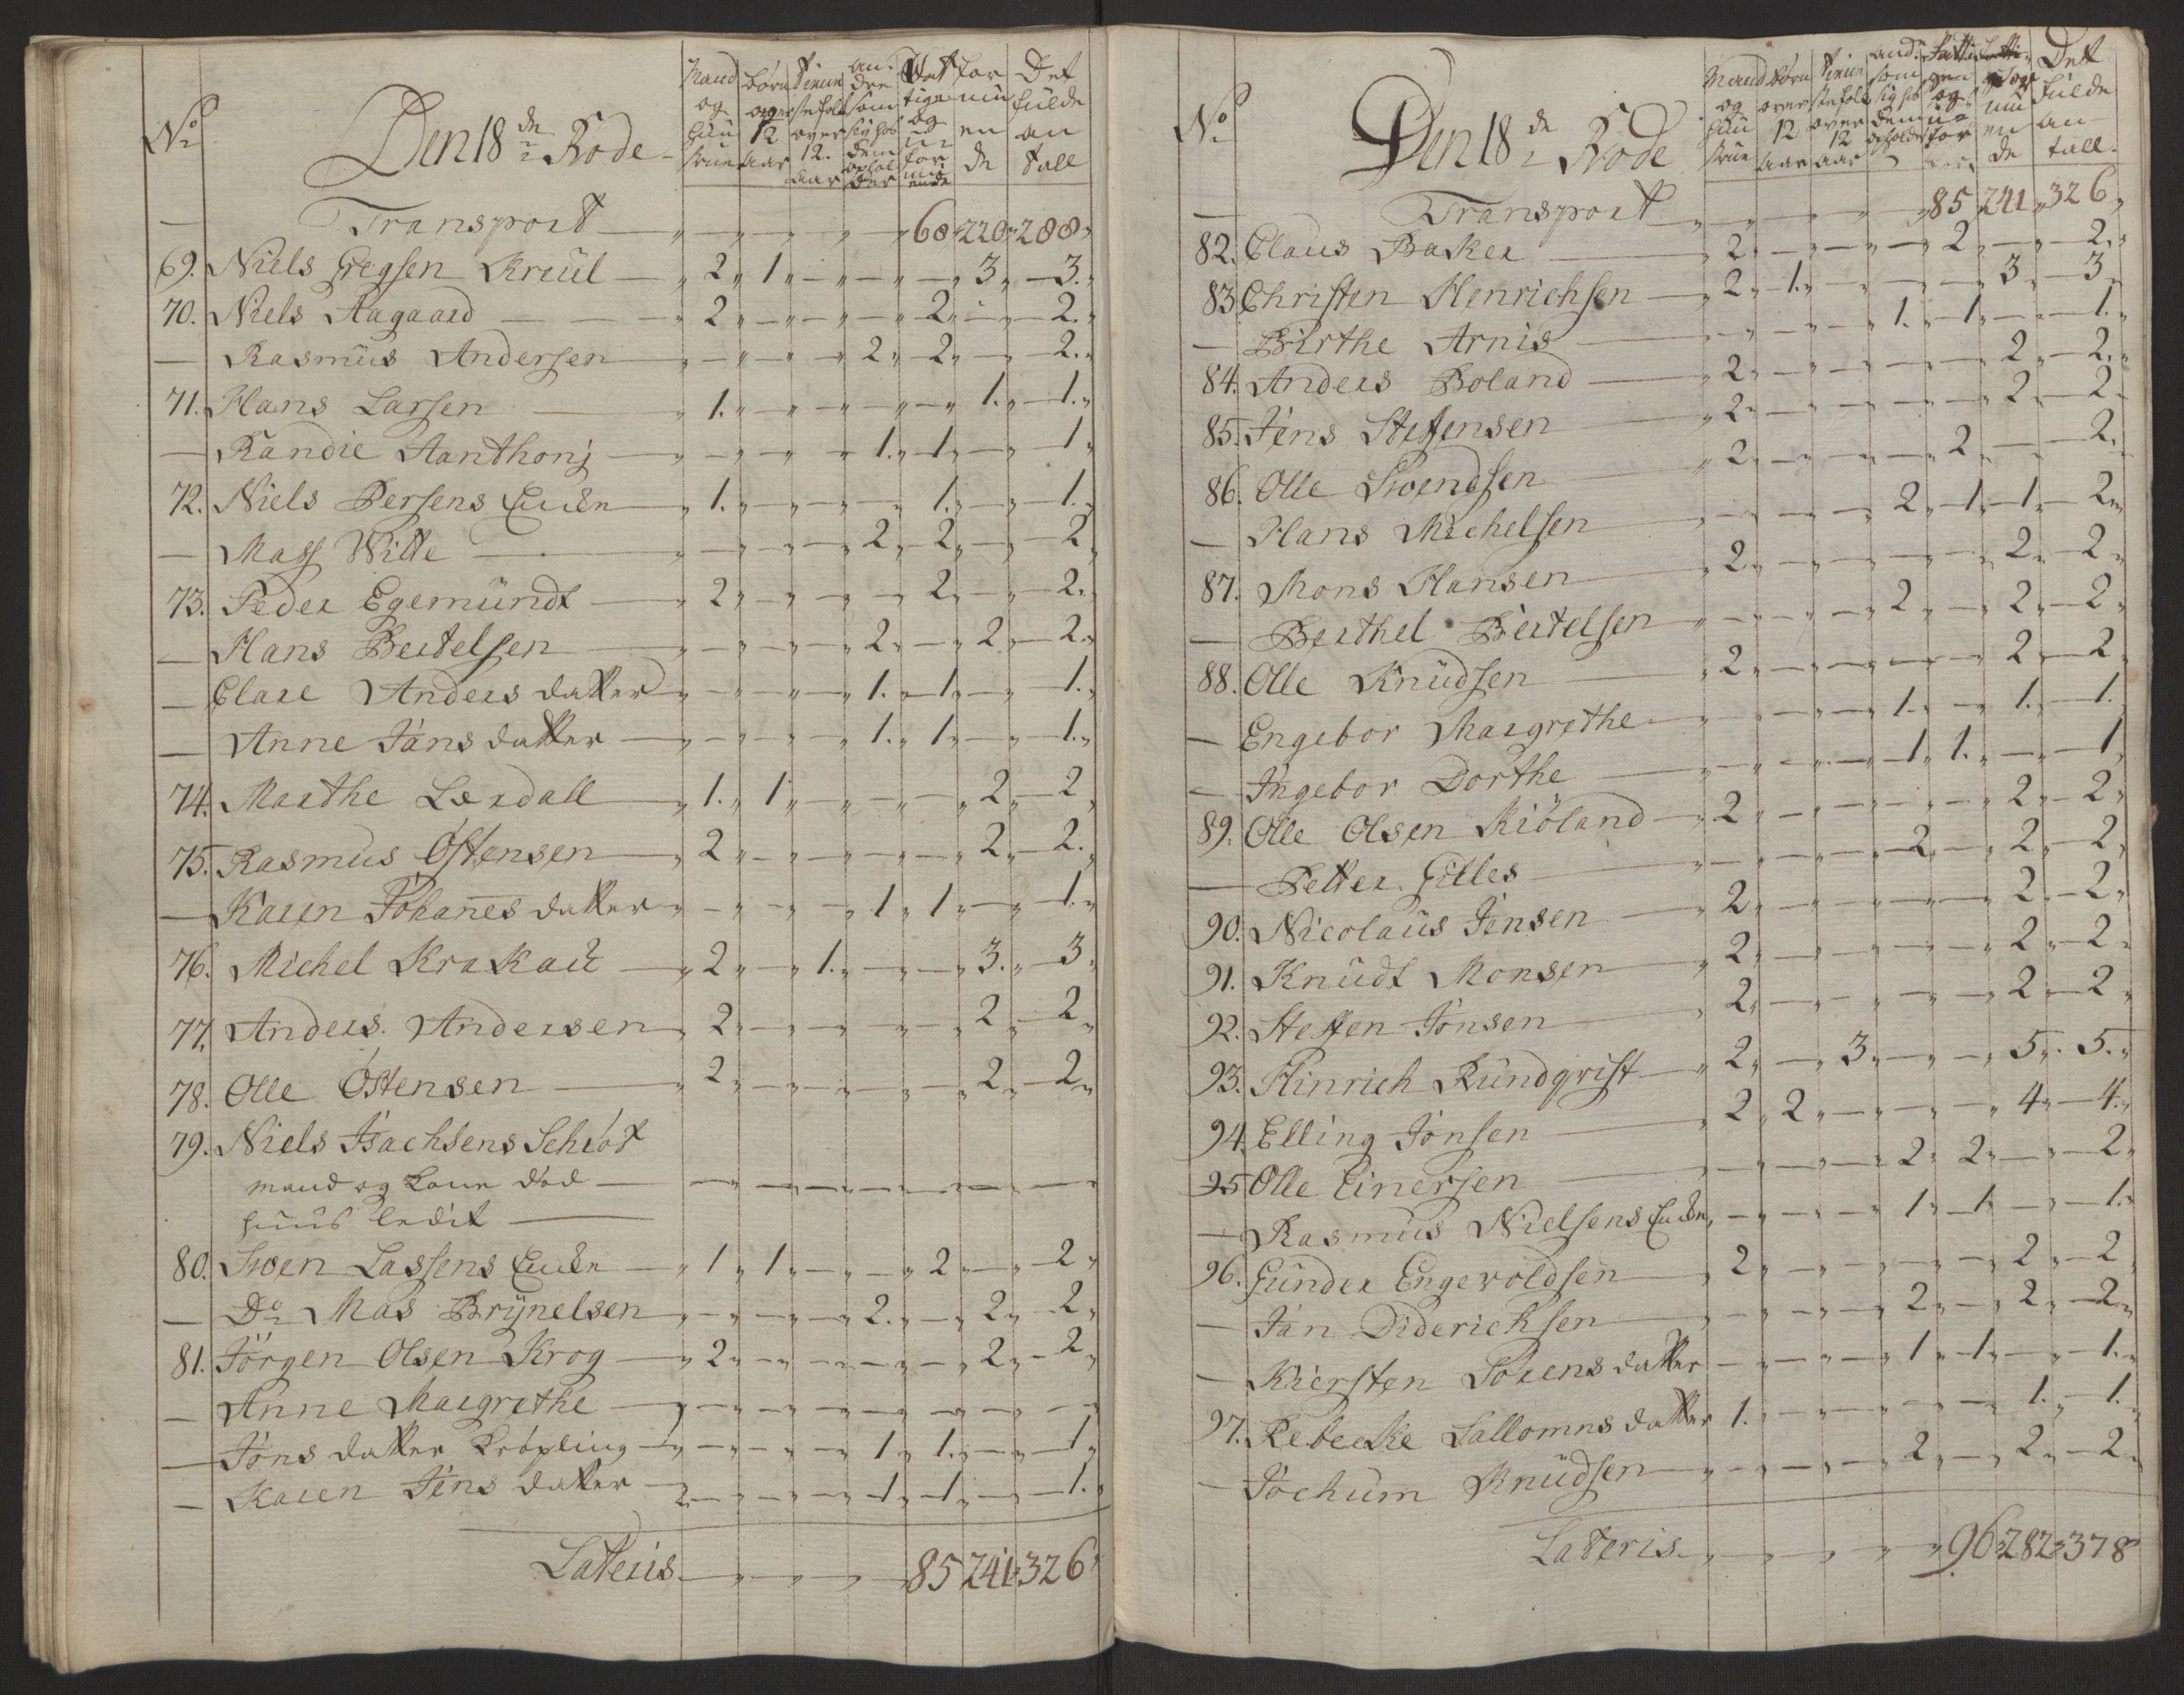 No
Den 18de Rode
Mand og huustrue
börn over 12 aar
tienniste folk over 12. aar
andre som sig hos dem opholder
fattige og uformuende
formuende
Det fulde antall
Transport 68 220 288
69. Niels Gregsen Kreül 2 1 3 3.
70. Niels Aagaard 2 2 2.
Rasmüs Andersen 2 2 2.
71. Hans Larsen 1. 1. 1.
Randie Aanthonj 1. 1 1
72. Niels Persens Encke 1. 1. 1.
Mass Wille 2 2 2
73. Peder Egemündt 2 2 2.
Hans Bertelsen 2 2 2
Clare Anders datter 1. 1 1.
Anne Jáns datter 1. 1 1.
74. Marthe Lerdall 1. 1 2 2
75. Rasmus Östensen 2 2 2.
Karen Johañes datter 1 1 1.
76. Michel Krakaü 2 1. 3. 3
77. Anders. Andersen 2 2 2
78. Olle Östensen 2 2 2
79. Niels Isachsens Schiöt
mand og Kone död
huus ledit
80. Swen Lassens Encke 1 1 2 2
Do Mas Brÿnelsen 2. 2 2
81. Jörgen Olsen Krog 2 2 2
Anne Margrethe
Jöns datter Kröpling 1 1. 1
Karen Jéns datter 1 1 1.
Lateris 85 241 326
No
Den 18de Rode
Mand og huustrue
börn over 12 aar
tienniste folk over 12 aar
andre som sig hos dem opholder
fattige og ufor
formuende
Det fulde antall.
Transport 85 241 326
82. Claus Baker 2 2 2.
83. Christen Henrichsen 2 1. 3 3
Birthe Arnis 1. 1 1.
84. Anders Boland 2 2 2.
85. Jéns Steffensen 2 2 2
86. Olle Swendsen 2 2 2.
Hans Michelsen 2 1 1 2
87. Mons Hansen 2 2 2
Berthel Bertelsen 2 2 2
88. Olle Knüdsen 2 2 2
Engebor Margrethe 1. 1. 1.
Ingebor Dorthe 1 1. 1
89. Olle Olsen Kiöland 2 2 2
Petter Gilles 2 2 2
90. Nicolaüs Jénsen 2 2 2
91. Knüdt Monsen 2 2 2
92. Steffen Jónsen 2 2 2
93. Hinrich Ründqvist 2 3 5. 5.
94. Elling Jónsen 2 2 4 4.
95 Olle Einersen 2 2 2
Rasmus Nielsens Encke 1 1 1.
96. Günder Engevoldsen 2 2 2
Ján Diderichsen 2 2 2
Kiersten Sörens datter 1 1 1.
97. Rebecke Sallomns datter 1. 1. 1.
Jochum Knüdsen 2 2 2
Lateris 96 282 378